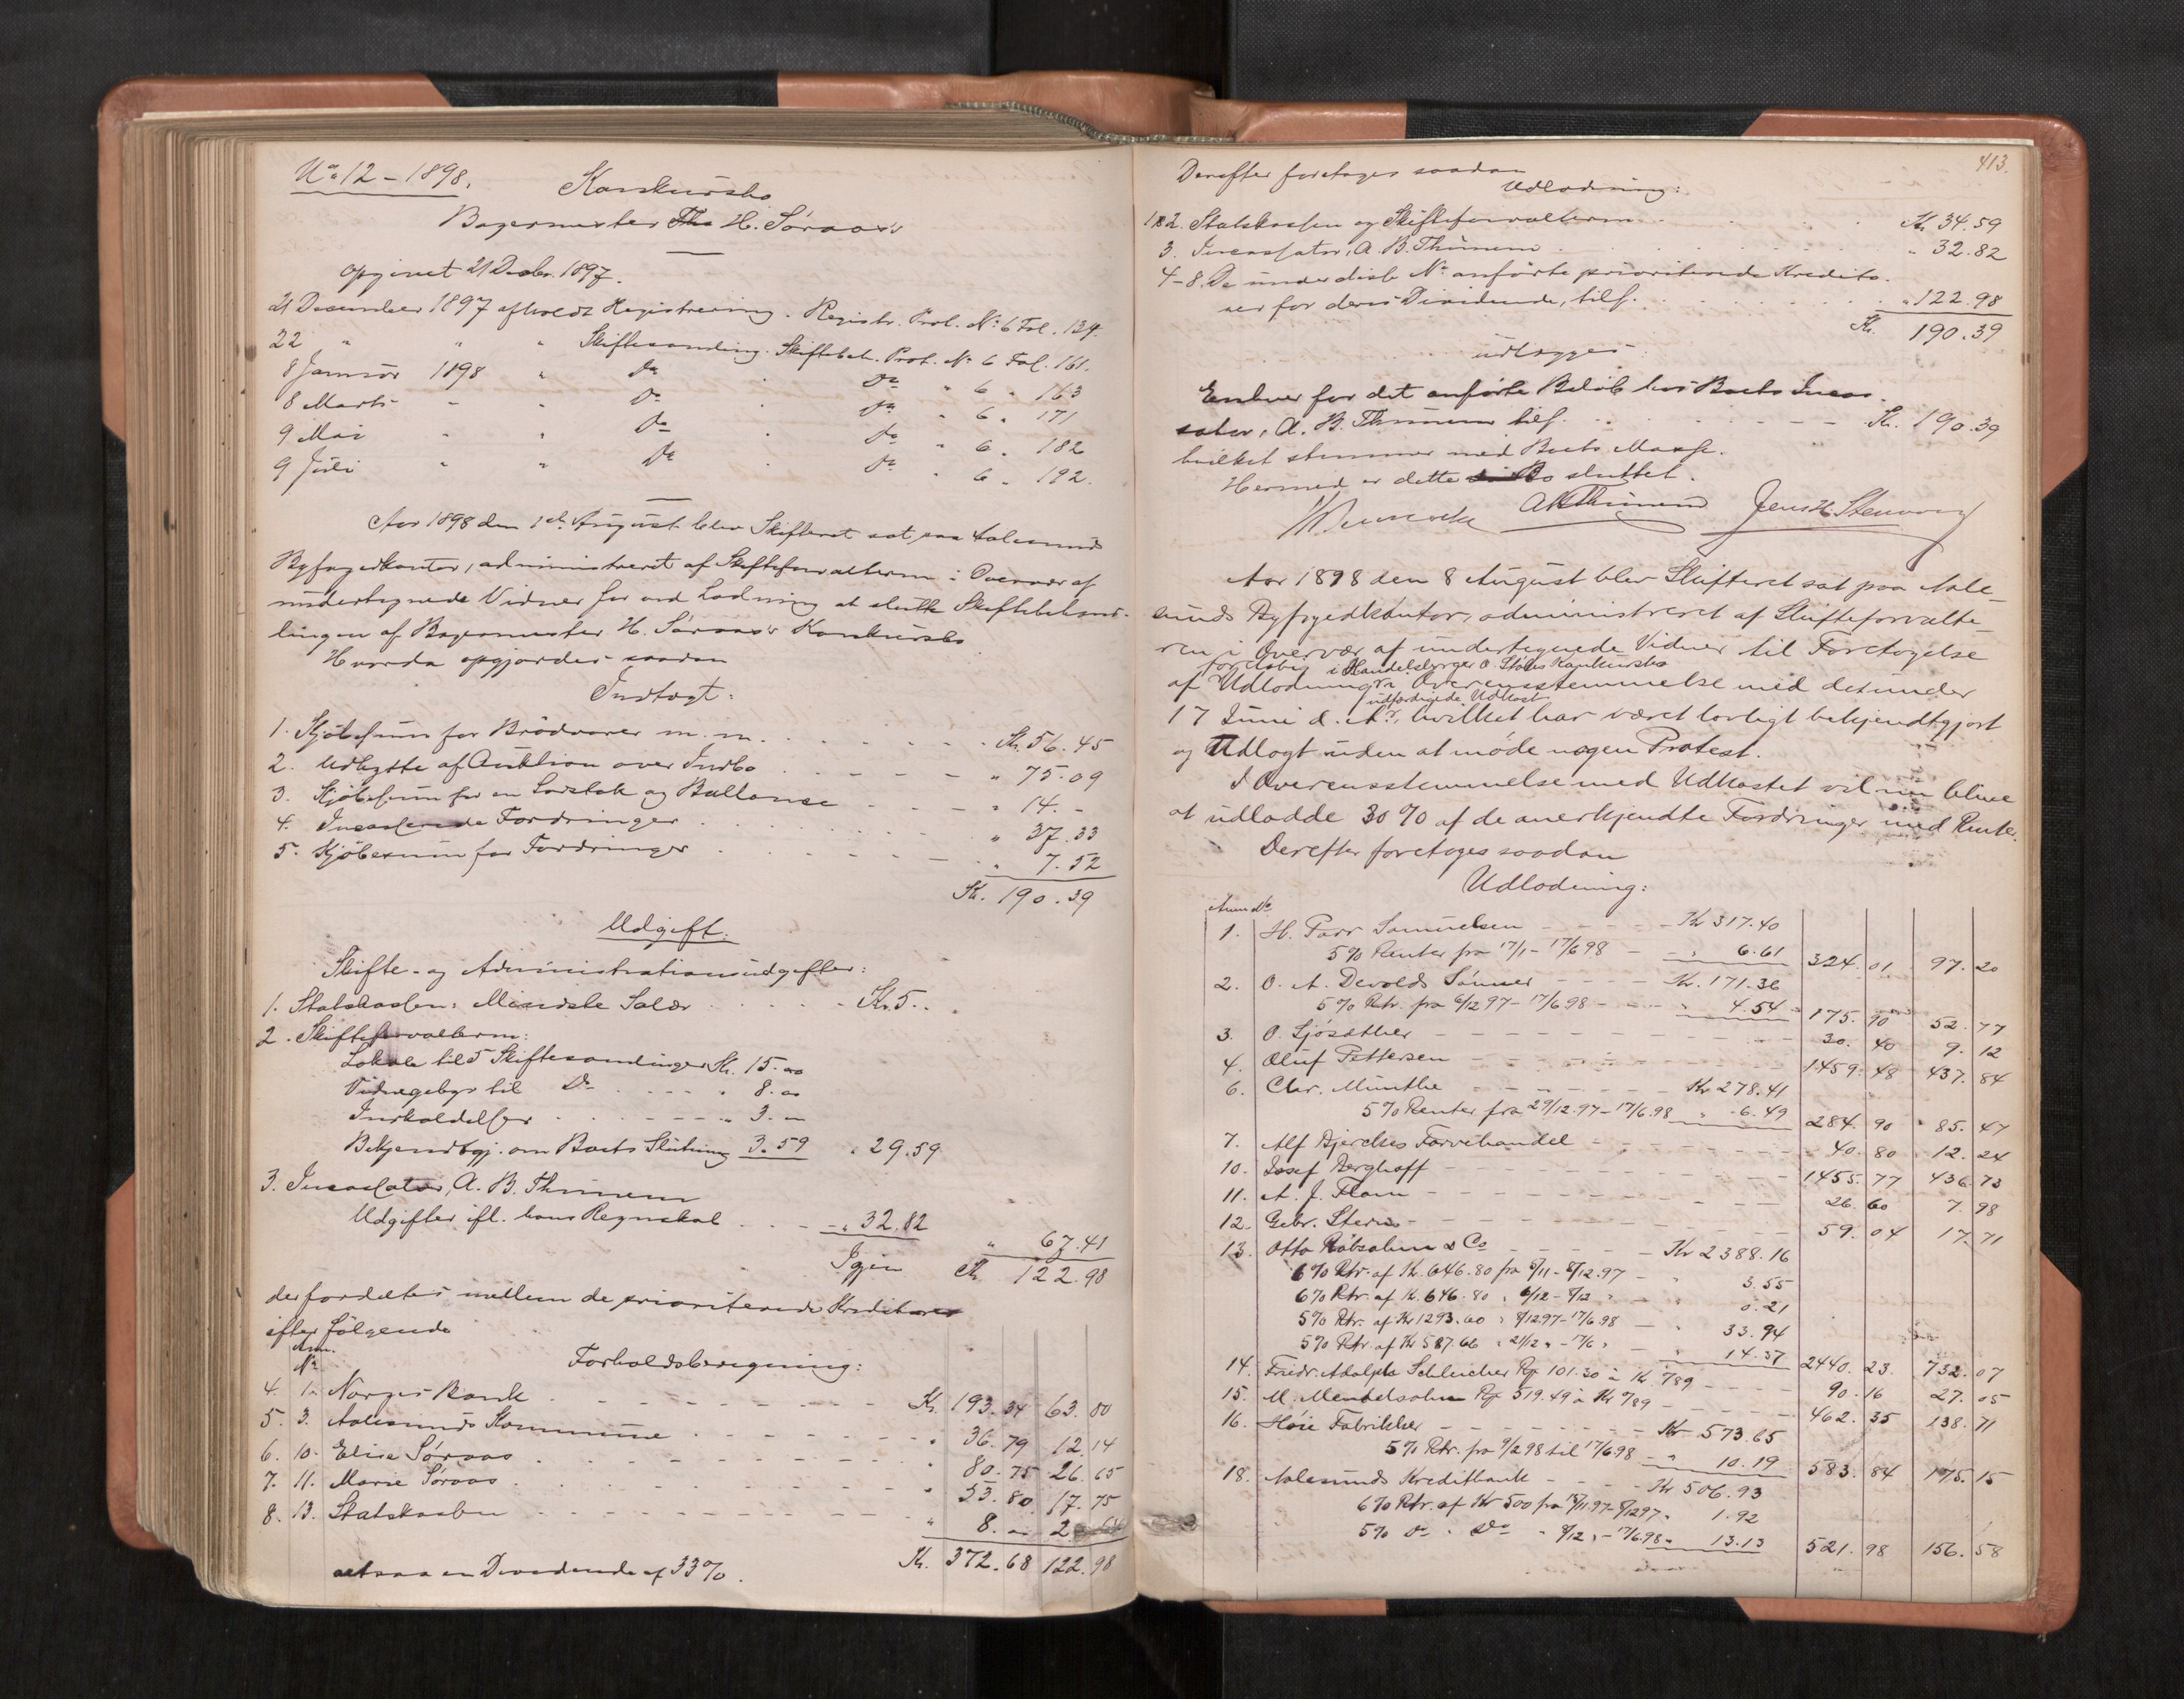 No 12 - 1898.
Konkursbo
Bagermester H. Søraas's
Opgivet 21 Decbr. 1897.
21 December 1897 afholdt Registrering. Registr. Prot. No 6 Fol. 134.
22 " " " Skiftesamling. Skiftebeh. Prot. No 6 Fol. 161.
8 Januar 1898 " Do Do " 6 " 163
8 Marts " " Do Do " 6 " 171
9 Mai " " Do Do " 6 " 182
9 Juli " " Do Do " 6 " 192.
Aar 1898 den 1ste August blev Skifteret sat paa Aalesunds
Byfogedkontor, administreret af Skifteforvalteren i Overvær af
undertegnede Vidner for ved Lodning at slutte Skiftebehand-
lingen af Bagermester H. Søraas's Konkursbo
Hvorda opgjordes saadan
Indtægt:
1. Kjøbesum for Brødvarer m. m. Kr. 56.45
2. Udbytte af Auktion over Indbo " 75.09
3. Kjøbesum for en og Ballance " 14.-
4. Incasserede Fordringer " 37.33
5. Kjøbesum for Fordringer " 7.52
Kr. 190.39
Udgift:
Skifte- og Administrationsudgifter:
1. Statskassen: Mindste Salær Kr. 5..
2. Skifteforvalteren:
Lokale til 5 Skiftesamlinger Kr. 15.00
Vidnegebyr til Do " 8.00
Indkaldelser " 3.00
Bekjendtgj. om Boets Slutning 3.59 " 29.59
3. Incassator, A. B. Thunem
Udgifter ifl. hans Regnskab " 32.82
" 67.41
Igjen Kr. 122.98
der fordeles mellem de prioriterede Kreditorer
efter følgende
Anm.
No
Forholdsberegning:
4. 1. Norges Bank Kr. 193.34 63.80
5. 3. Aalesunds Kommune " 36.79 12.14
6. 10. Elise Søraas " 80.75 26.65
7. 11. Marie Søraas " 53.80 17.75
8. 13. Statskassen " 8.00 2.64
Kr. 372.68 122.98
altsaa en Dividende af 33%.
413.
Derefter foretoges saadan
Udlodning:
1 & 2. Statskassen og Skifteforvalteren Kr. 34.59
3. Incassator, A. B. Thunem " 32.82
4-8. De under disse No anførte prioriterede Kredito-
rer for deres Dividende, tils. " 122.98
Kr. 190.39
udlægges:
Enhver for det anførte Beløb hos Boets Incas-
sator, A. B. Thunem tils. Kr. 190.39
hvilket stemmer med Boets Masse.
Hermed er dette Bo sluttet.
ABThunem Jens H. Stenvaag
Aar 1898 den 8 August blev Skifteret sat paa Aale-
sunds Byfogedkontor, administreret af Skifteforvalte-
ren i Overvær af undertegnede Vidner til Foretagelse
foreløbig i Handelsborger O. Konkursbo
af Udlodning i Overensstemmelse med det under
udfærdigede Udkast
17 Juni d. A., hvilket har været lovligt bekjendtgjort
og Udlagt uden at møde nogen Protest.
I Overensstemmelse med Udkastet vil nu blive
at udlodde 30% af de anerkjendte Fordringer med Renter.
Derefter foretoges saadan
Udlodning:
Anm No
1. H. Parr Samuelsen Kr 317.40
5% Renter fra 17/1 - 17/6 98 " 6.61 324.01 97.20
2. O. A. Devolds Sønner Kr. 171.36
5% Rtr. fra 6/12 97 - 17/6 98 " 4.54 175.90 52.77
3. O. Sjøsæther 30.40 9.12
4. Oluf Pettersen 1459.48 437.84
6. Chr. Munthe Kr 278.41
5% Renter fra 29/12.97 - 17/6.98 " 6.49 284.90 85.47
7. Alf Bjerckes Farvehandel 40.80 12.24
10. Josef Berghoff 1455.77 436.73
11. A. J. Flam 26.60 7.98
12. Gebr. Stern 59.04 17.71
13. Otto Robsahm & Co Kr 2388.16
6% Rtr. af Kr. 646.80 fra 5/11 - 8/12.97 " 3.55
6% Rtr. af Kr. 646.80 " 6/12 - 8/12 " " 0.21
5% Rtr. af Kr 1293.60 " 8/12 97 - 17/6 98 " 33.94
5% Rtr. af Kr 587.66 " 21/12 " - 17/6 " " 14.37 2440.23 732.07
14. Friedr. Adolph Schleicher Rp 101.30 à Kr. 789 90.16 27.05
15. M. Mendelsohn Rp 519.49 à Kr 789 462.35 138.71
16. Høie Fabrikker Kr 573.65
5% Rtr. fra 9/2 98 til 17/6 98 " 10.19 583.84 175.15
18. Aalesunds Kreditbank Kr 506.93
6% Rtr. af Kr 500 fra 15/11 97 - 8/12 97 " 1.92
5% do " Do " 8/12 " - 17/6.98 " 13.13 521.98 156.58